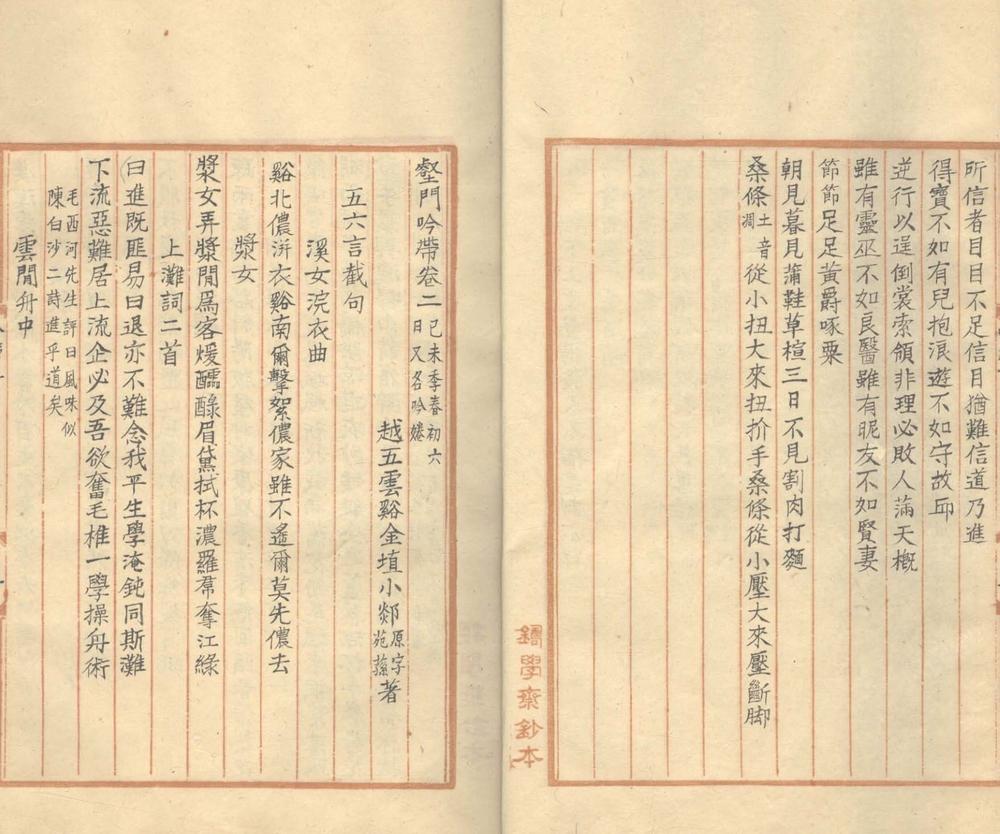 所信者目目不足信目猶難信道乃進
得寶不如有兒抱浪遊不如守故邱
逆行以逞倒裳索領非理必敗人滿天概
雖有靈巫不如良醫雖有昵友不如賢妻
節節足足黃爵啄粟
朝見暮見蒲鞋草楦三日不見割肉打麵
桑條土音凋從小扭大來扭扴手桑條從小壓大來壓斷脚
鑄學齋鈔本
壑門吟帶卷二己未季春初六日又名吟𡡓
越五雲谿金埴小郯原字苑蓀著
五六言截句
溪女浣衣曲
谿北儂洴衣谿南爾擊絮儂家雖不遙爾莫先儂去
槳女
槳女弄槳閒爲客煖醽醁眉黛拭杯濃羅帬奪江綠
上灘詞二首
曰進既匪易曰退亦不難念我平生學淹鈍同斯灘
下流惡難居上流企必及吾欲奮毛椎一學操舟術
毛西河先生評曰風味似
陳白沙二詩進乎道矣
雲閒舟中